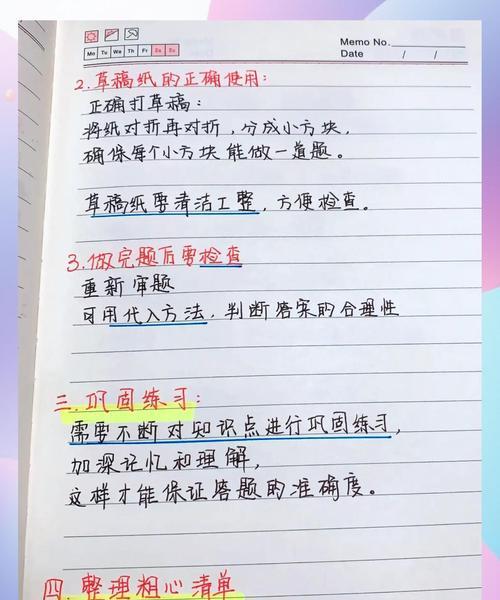 Memo No.
Mo Tu We Th Fr Sa Su
Date / /
2.草稿纸的正确使用:
正确打草稿:
将纸对折再对折,分成小方块,
确保每个小方块能做一道题。
草稿纸要清洁工整,方便检查。
3.做完题后要检查
重新审题
可用代入方法,判断答案的合理性
三.巩固练习:
需要不断对知识点进行巩固练习,
加深记忆和理解,
这样才能保证答题的准确度。
四.整理粗心清单